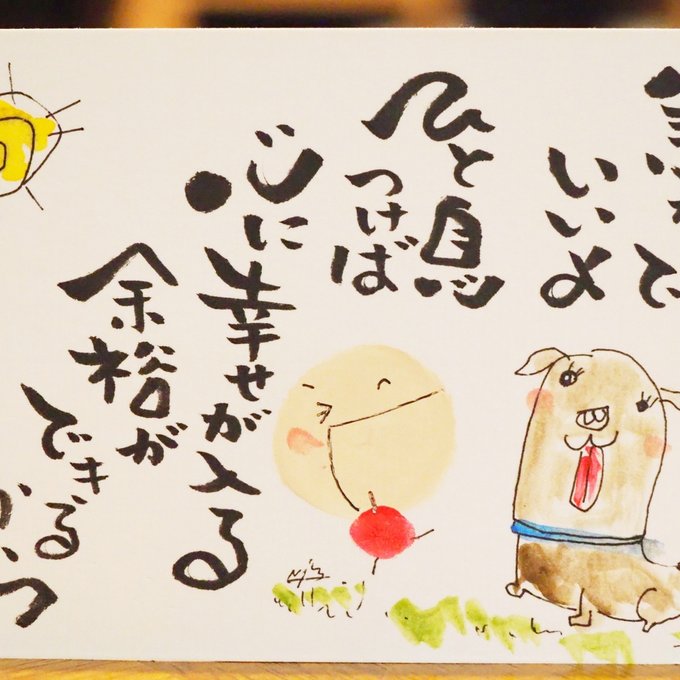 いいよ
ひと息
つけば
心に
幸せが入る
余裕が
できる